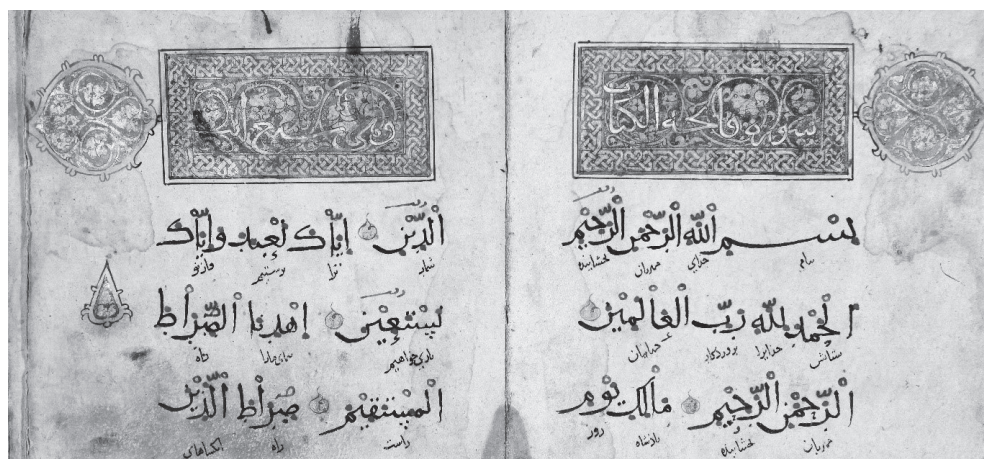 سورة فاتحة الكتاب
بسم الله الرحمن الرحيم
بنام خدای مهربان بخشاینده
الحمد لله رب العالمين
ستایش خدایرا پروردگار جهانیان
الرحمن الرحيم مالك يوم
مهربان بخشاینده پادشاه روز
وهي سبع
الدين إياك نعبد وإياك
شمار ترا
نستعين اهدنا الصراط
یاری خواهیم راه
المستقيم صراط الذين
راست راه